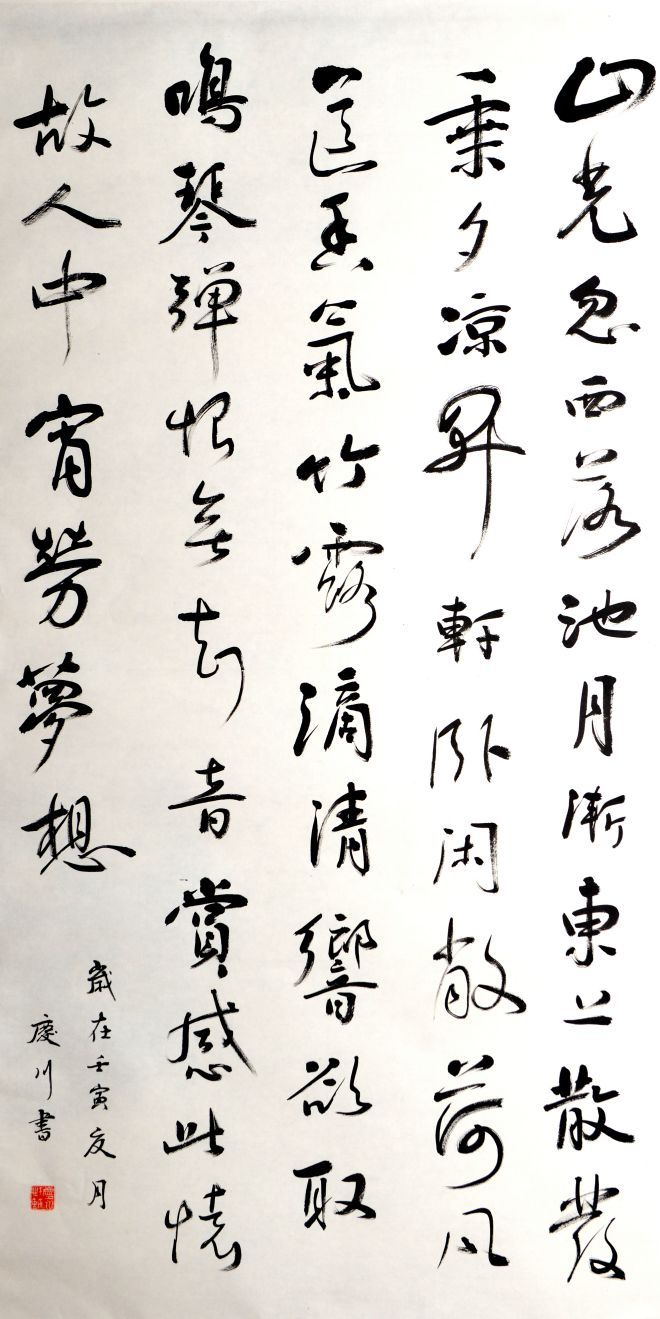 山光忽西落池月漸東上散發
乘夕涼開軒卧閑敞荷風
送香氣竹露滴清響欲取
鳴琴彈恨無知音賞感此懷
故人中宵勞夢想
歲在壬寅夏月
慶川書